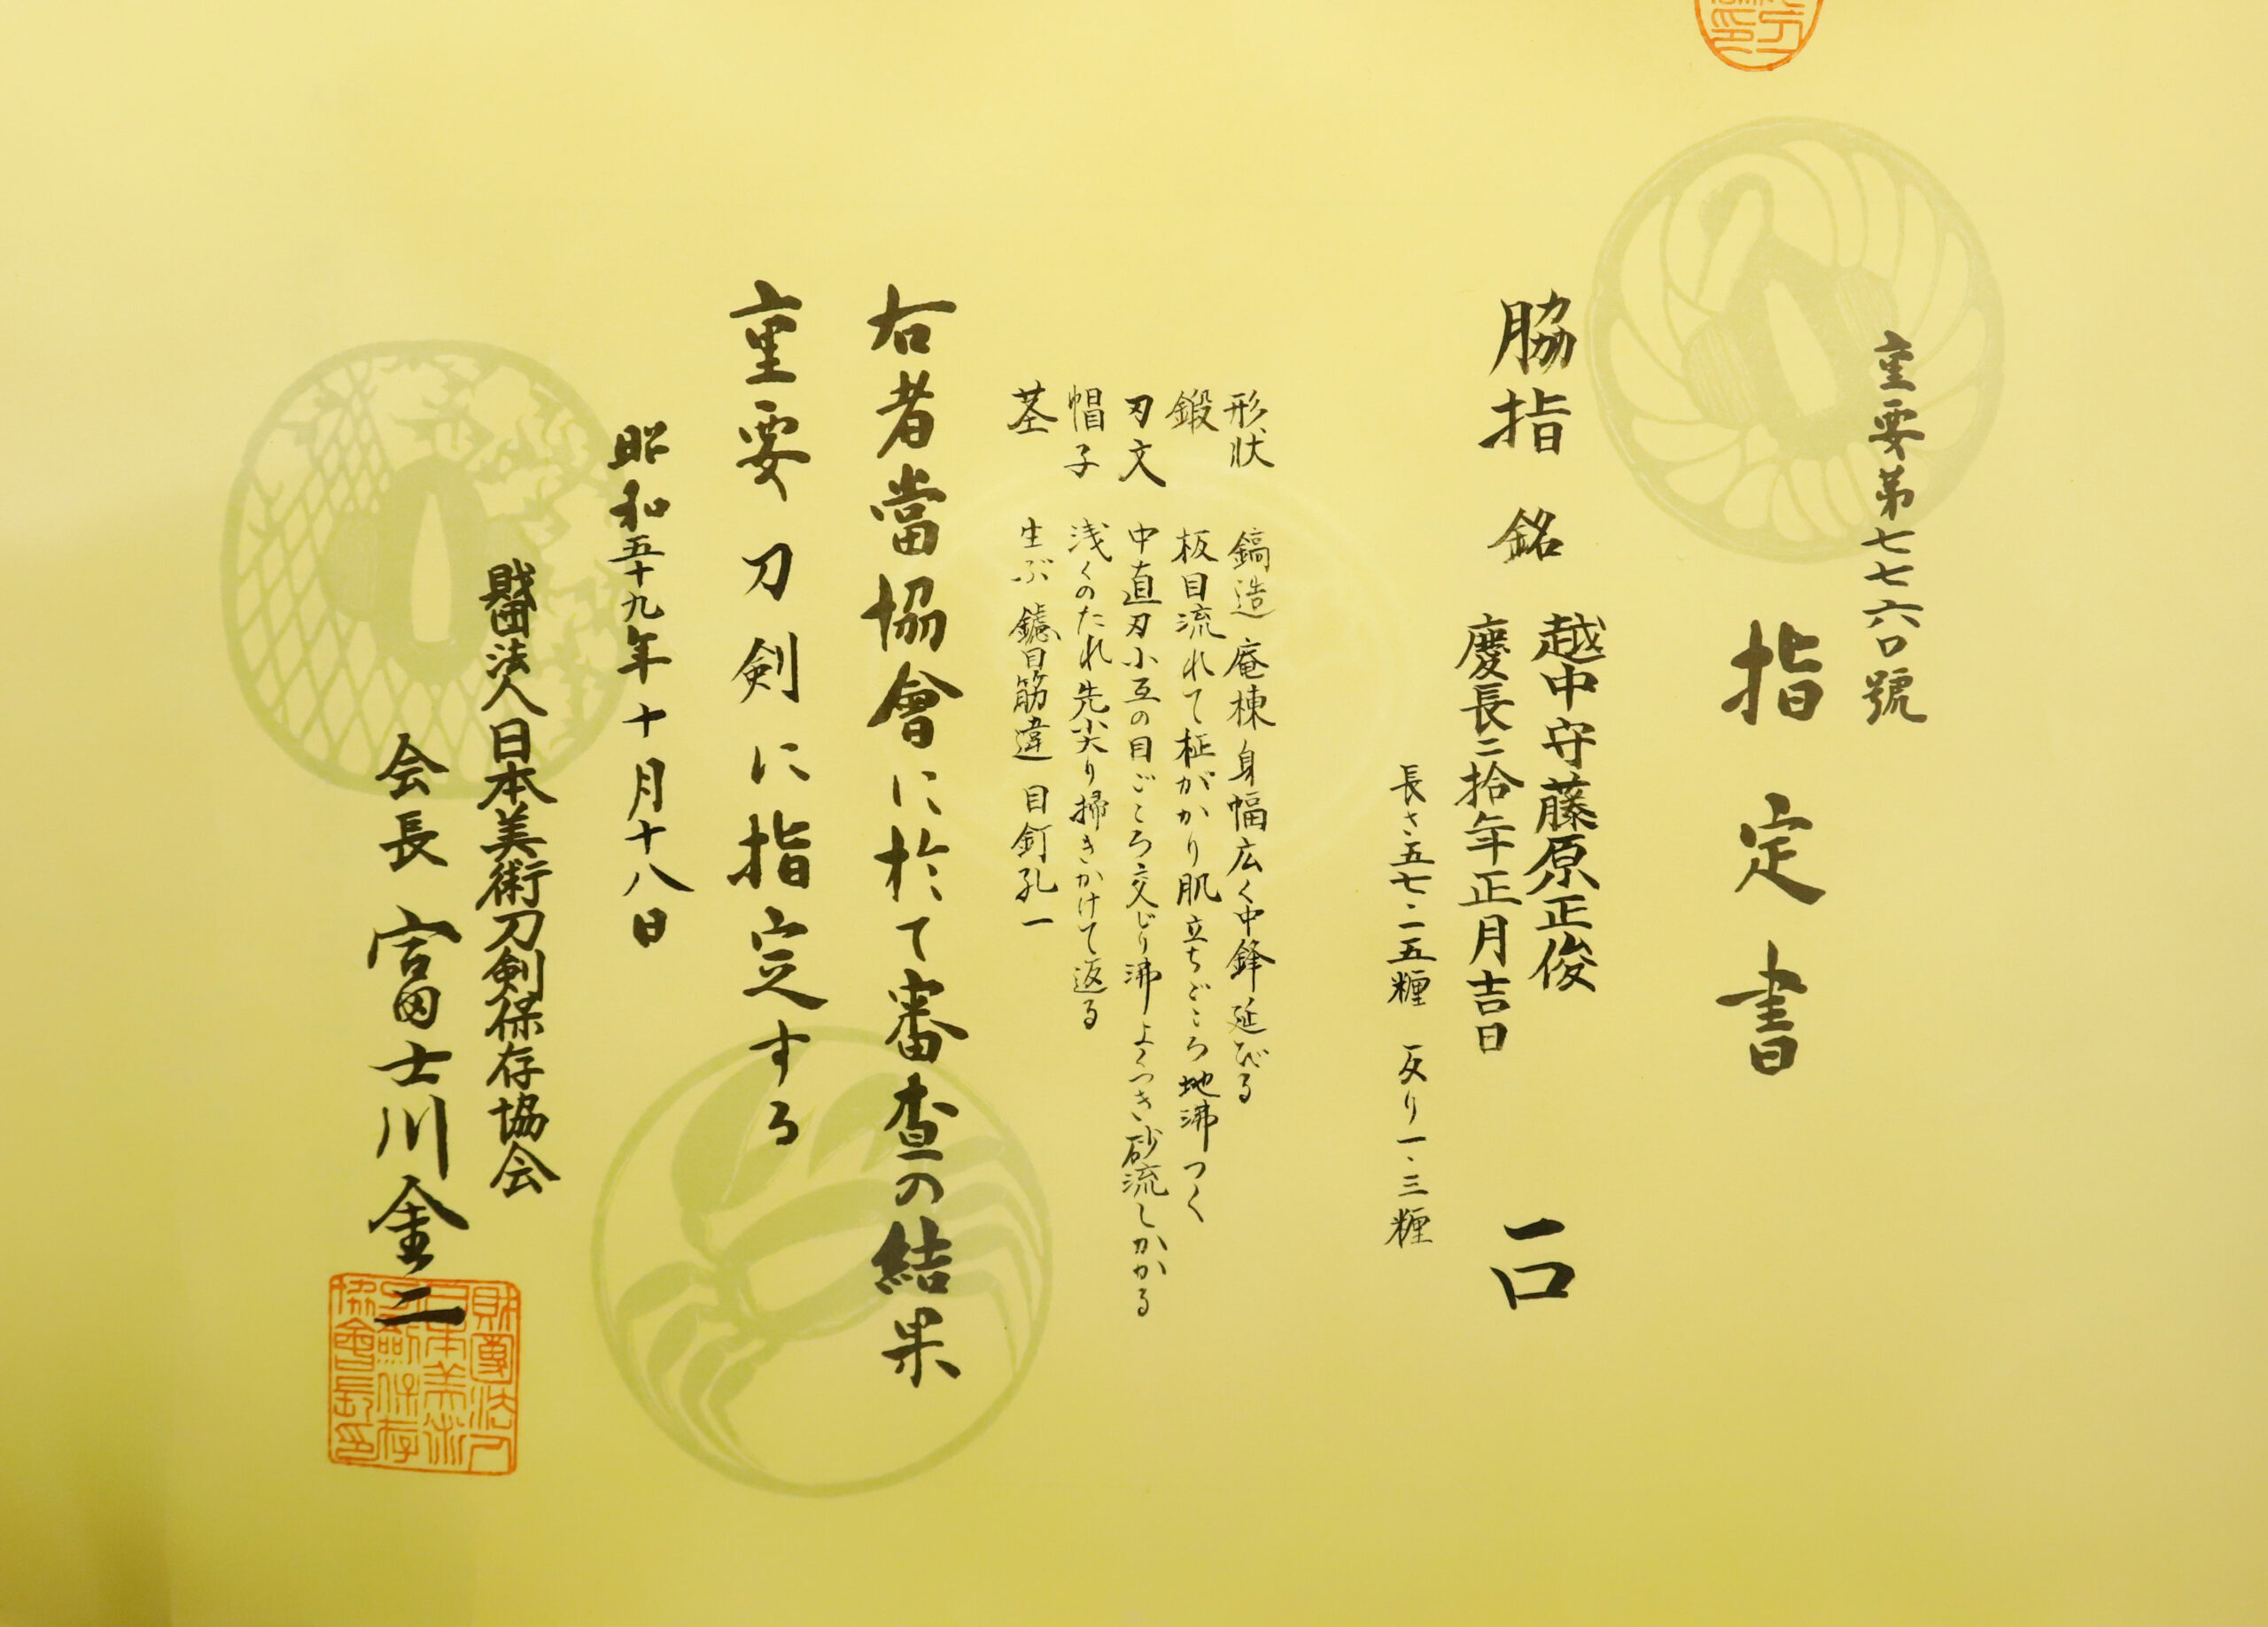 重要第七七六〇號
指定書
脇指 銘 越中守藤原正俊 一口
慶長二拾年正月吉日
長さ五七・二五糎 反り一・三糎
形状 鎬造 庵棟 身幅広く 中鋒延びる
鍛 板目流れて柾がかり肌立ちごころ 地沸つく
刃文 中直刃 小互の目ごころ交じり 沸よくつき 砂流しかかる
帽子 浅くのたれ先尖り掃きかけて返る
茎 生ぶ 鑢目筋違 目釘孔一
右者當協會に於て審査の結果
重要刀剣に指定する
昭和五十九年十月十八日
財団法人日本美術刀剣保存協会
会長 富士川金二
財團法人
日本美術
刀劍保存
協會長印